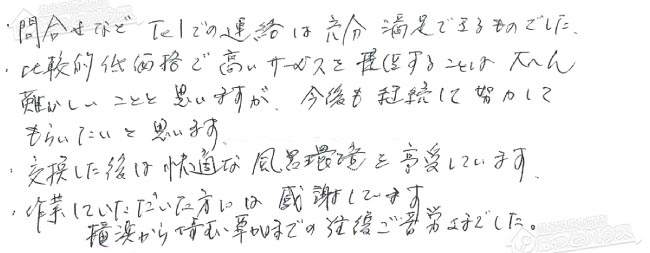 ・問合せなど Telでの連絡は充分 満足できるものでした。
・比較的低価格で高いサービスを提供することは 大へん
難かしいことと思いますが、今後も継続して努力して
もらいたいと思います。
・交換した後は快適な風呂環境を享受しています。
・作業していただいた方には感謝しています
横浜から埼玉草加までの往復ご苦労さまでした。